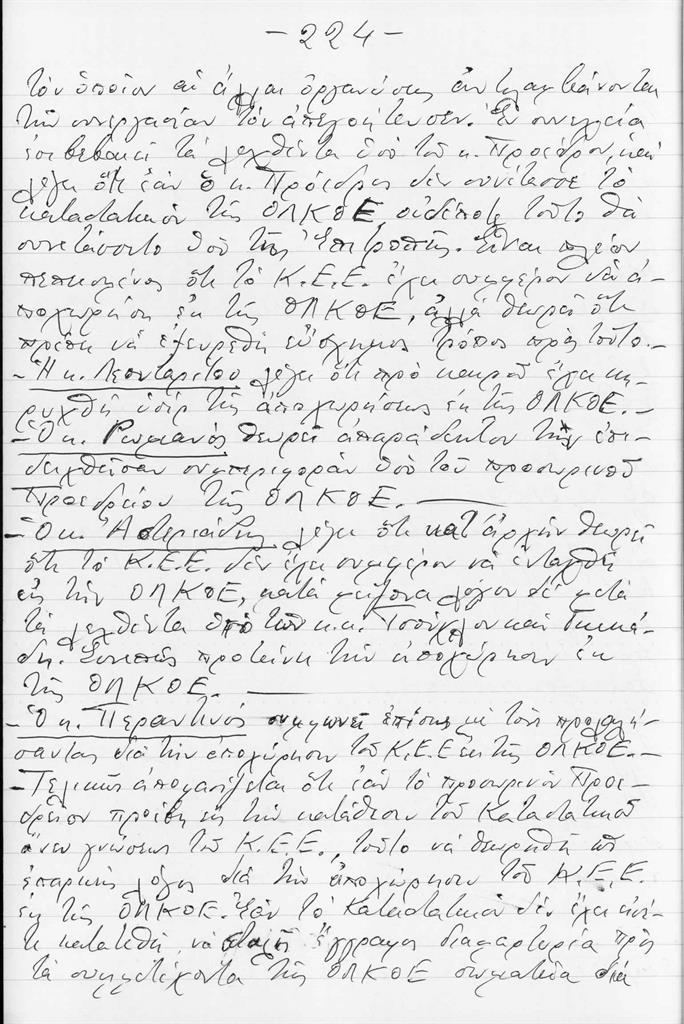 -224-
τὸν ὁποῖον αἱ ἄλλαι ὀργανώσεις ἀντιλαμβάνονται
τὴν συνεργασίαν τὸν ἀπεγοήτευσεν. Ἐν συνεχείᾳ
ἐπιβεβαιοῖ τὰ λεχθέντα ὑπὸ τοῦ κ. Προέδρου, καὶ
λέγει ὅτι ἐὰν ὁ κ. Πρόεδρος δὲν συνέτασσε τὸ
καταστατικὸν τῆς ΟΠΚΘΕ οὐδέποτε τοῦτο θὰ
συνετάσσετο ὑπὸ τῆς Ἐπιτροπῆς. Εἶναι πλέον
πεπεισμένος ὅτι τὸ Κ.Ε.Ε. ἔχει συμφέρον νὰ ἀ-
ποχωρήσῃ ἐκ τῆς ΟΠΚΘΕ, ἀλλὰ θεωρεῖ ὅτι
πρέπει νὰ ἐξευρεθῇ εὐσχημος τρόπος πρὸς τοῦτο.-
- Ἡ κ. Λεονταρίτου λέγει ὅτι πρὸ καιροῦ ἔχει κη-
ρυχθῆ ὑπὲρ τῆς ἀποχωρήσεως ἐκ τῆς ΟΠΚΘΕ.-
- Ὁ κ. Ρωμανὸς θεωρεῖ ἀπαράδεκτον τὴν ἐπι-
δειχθεῖσαν συμπεριφορὰν ὑπὸ τοῦ προσωρινοῦ
Προεδρείου τῆς ΟΠΚΘΕ. -
- Ὁ κ. Ἀστεριάδης λέγει ὅτι κατ' ἀρχὴν θεωρεῖ
ὅτι τὸ Κ.Ε.Ε. δὲν ἔχει συμφέρον νὰ ἐνταχθῇ
εἰς τὴν ΟΠΚΘΕ, κατὰ μείζονα λόγον δὲ μετὰ
τὰ λεχθέντα ὑπὸ τῶν κ.κ. Τσούχλου καὶ
Συνεπῶς προτείνει τὴν ἀποχώρησιν ἐκ
τῆς ΟΠΚΘΕ. -
- Ὁ κ. Περαντινὸς συμφωνεῖ ἐπίσης μὲ τοὺς προλαλή-
σαντας διὰ τὴν ἀποχώρησιν τοῦ Κ.Ε.Ε ἐκ τῆς ΟΠΚΘΕ.-
- Τελικῶς ἀποφασίζεται ὅτι ἐὰν τὸ προσωρινὸν Προε-
δρεῖον προέβη εἰς τὴν κατάθεσιν τοῦ Καταστατικοῦ
ἄνευ γνώσεως τοῦ Κ.Ε.Ε., τοῦτο νὰ θεωρηθῇ ὡς
ἐπαρκὴς λόγος διὰ τὴν ἀποχώρησιν τοῦ Κ.Ε.Ε.
ἐκ τῆς ΟΠΚΘΕ. Ἐὰν τὸ Καταστατικὸν δὲν ἔχει εἰσέ-
τι κατατεθῆ, νὰ σταλῇ ἔγγραφος διαμαρτυρία πρὸς
τὰ συμμετέχοντα τῆς ΟΠΚΘΕ σωματεῖα διὰ